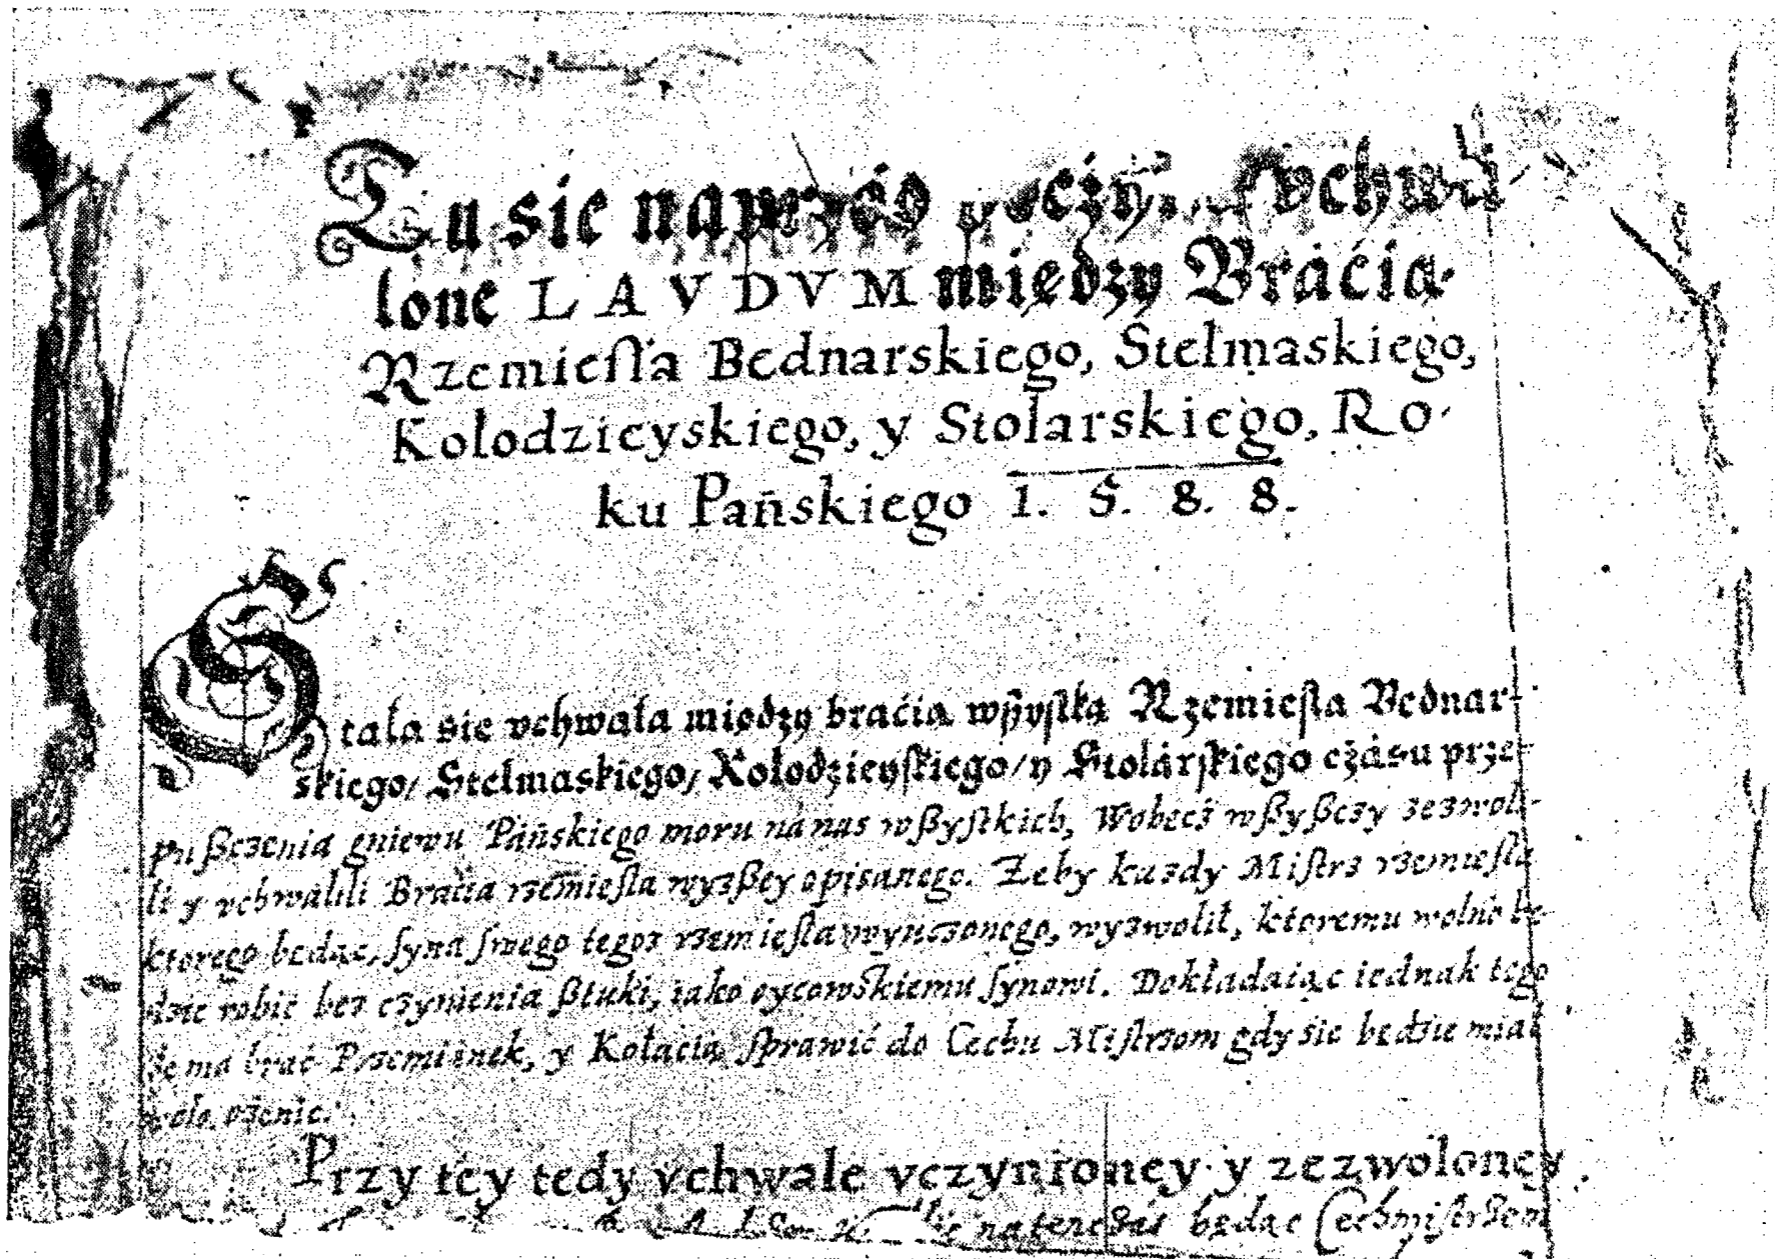 Tu sie vchwa
lone LAVDVM między Bráćią
Rzemiesła Bednarskiego, Stelmaskiego,
Kołodzieyskiego, y Stolarskiego, Ro-
ku Pańskiego 1. 5. 8. 8.
Stała sie vchwała między braćią wßyſtką Rzemieſła Bednar-
skiego/ Stelmaskiego/ Kołodzieyſkiego/ y Stolárſkiego czásu prze-
pußczenia gniewu Páńskiego moru ná nas wßyſtkich, Wobecz wßyßczy zezwoli-
li y vchwálili Bráćia rzemieſła wyzßey opisanego. Zeby kazdy Miſtrz rzemieſła
ktorego będąc, ſyna ſwego tegoz rzemieſła wyuczonego, wyzwolił, ktoremu wolno bę-
dzie robić bez czynienia ßtuki, iako oycowskiemu ſynowi. Dokładaiąc iednak tego
że ma brać Przemianek, y Kolacią ſprawić do Cechu Miſtrzom gdy sie będzie miał
ożenic.
Przy tey tedy vchwale vczynioney y zezwoloney
natenczás będąc Cechmiſtrzem